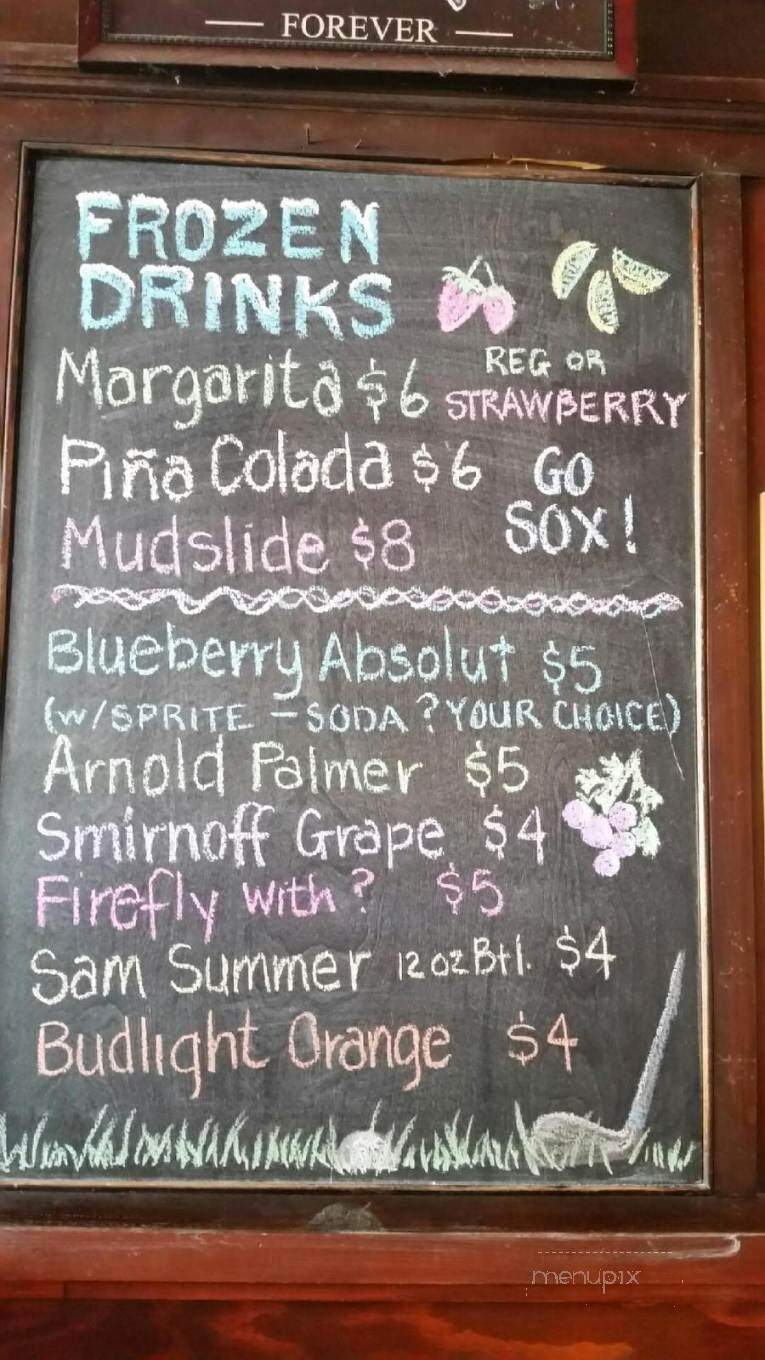 — FOREVER —
FROZEN
DRINKS
Margarita $6 REG OR STRAWBERRY
Piña Colada $6 GO
Mudslide $8 SOX!
Blueberry Absolut $5
(W/SPRITE - SODA ? YOUR CHOICE)
Arnold Palmer $5
Smirnoff Grape $4
Firefly with? $5
Sam Summer 12oz Btl. $4
Budlight Orange $4
menupix